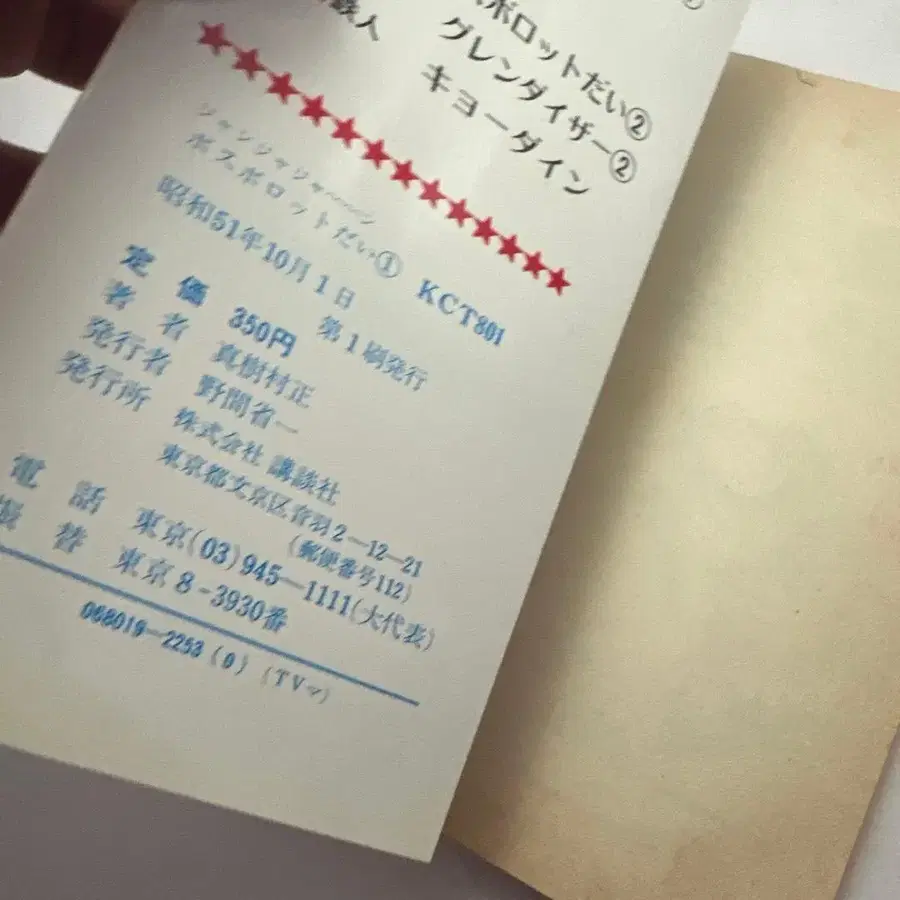 ボロットだい②
グレンダイザー②
鉄人
キョーダイン
ジャンジャジャ〜〜〜ン
ボスボロットだい① KCT801
昭和51年10月1日 第1刷発行
定価 350円
著者 真樹村正
発行者 野間省一
発行所 株式会社 講談社
東京都文京区音羽2—12—21
(郵便番号112)
電話 東京(03)945—1111(大代表)
振替 東京8-3930番
068019—2253(0)(TVマ)